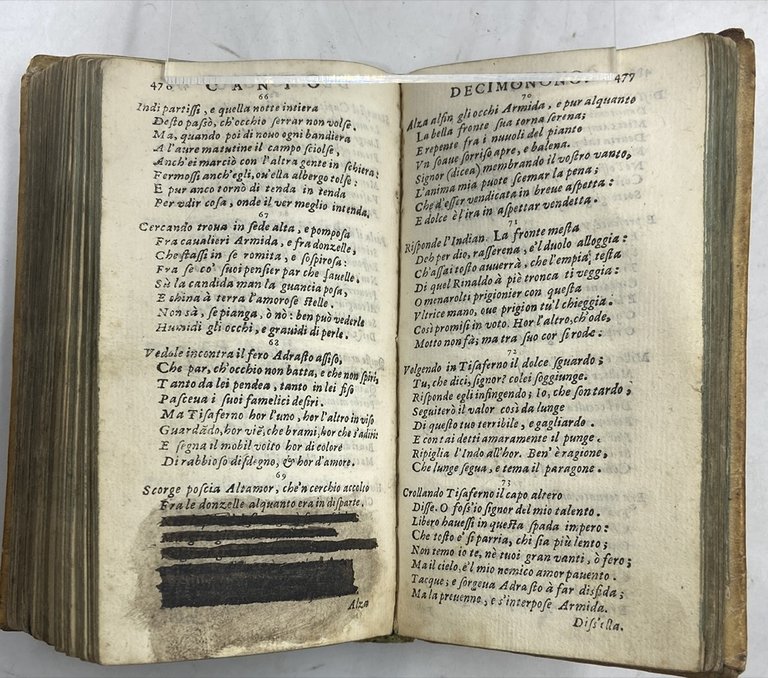 476 CANTO
66
Indi partissi, e quella notte intiera
Desto passò, ch'occhio serrar non volse.
Ma, quando poi di nouo ogni bandiera
A l'aure matutine il campo sciolse,
Anch'ei marciò con l'altra gente in schiera:
Fermossi anch'egli, ou'ella albergo tolse:
E pur anco tornò di tenda in tenda
Per vdir cosa, onde il ver meglio intenda.
67
Cercando troua in sede alta, e pomposa
Fra caualieri Armida, e fra donzelle,
Che stassi in se romita, e sospirosa:
Fra se co' suoi pensier par che fauelle.
Sù la candida man la guancia posa,
E china à terra l'amorose stelle.
Non sà, se pianga, ò nò: ben può vederle
Humidi gli occhi, e grauidi di perle.
68
Vedele incontra il fero Adrasto assiso,
Che par, ch'occhio non batta, e che non spiri,
Tanto da lei pendea, tanto in lei fiso
Pasceua i suoi famelici desiri.
Ma Tisaferno hor l'uno, hor l'altro in viso
Guardãdo, hor viẽ, che brami, hor che s'adiri:
E segna il mobil volto hor di colore
Di rabbioso disdegno, & hor d'amore.
69
Scorge poscia Altamor, che'n cerchio accolto
Fra le donzelle alquanto era in disparte.
Alza
DECIMONONO. 477
70
Alza alfin gli occhi Armida, e pur alquanto
La bella fronte sua torna serena;
E repente fra i nuuoli del pianto
Vn soaue sorriso apre, e balena.
Signor (dicea) membrando il vostro vanto,
L'anima mia puote scemar la pena;
Che d'esser vendicata in breue aspetta:
E dolce è l'ira in aspettar vendetta.
71
Risponde l'Indian. La fronte mesta
Deh per dio, rasserena, e'l duolo alloggia:
Ch'assai tosto auuerrà, che l'empia testa
Di quel Rinaldo à piè tronca ti veggia:
O menarolti prigionier con questa
Vltrice mano, oue prigion tu'l chieggia.
Così promisi in voto. Hor l'altro, ch'ode,
Motto non fà; ma tra suo cor si rode.
72
Volgendo in Tisaferno il dolce sguardo;
Tu, che dici, signor? colei soggiunge.
Risponde egli infingendo; Io, che son tardo,
Seguiterò il valor così da lunge
Di questo tuo terribile, e gagliardo.
E con tai detti amaramente il punge.
Ripiglia l'Indo all'hor. Ben' è ragione,
Che lunge segua, e tema il paragone.
73
Crollando Tisaferno il capo altero
Disse. O foss'io signor del mio talento.
Libero hauessi in questa spada impero:
Che tosto e' si parria, chi sia più lento;
Non temo io te, nè tuoi gran vanti, ò fero;
Ma il cielo, e'l mio nemico amor pauento.
Tacque; e sorgeua Adrasto à far disfida;
Ma la preuenne, e s'interpose Armida.
Diss'ella.